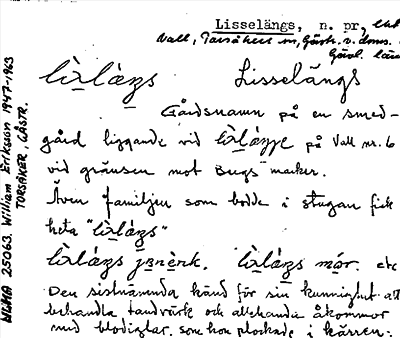 Lisselängs, n. pr.,
Vall, Torsåkers sn, Gästr. v. doms.
Gävl. län
Lisselängs
Gårdsnamn på en smed-
gård liggande vid på Vall nr. 6
vid gränsen mot Bugs marker.
Även familjen som bodde i stugan fick
heta
etc
Den sistnämnda känd för sin kunnighet att
behandla tandvärk och allehanda åkommor
med blodiglar, som hon plockade i kärren.
ULMA 25063. William Eriksson 1947-1963
TORSÅKER, GÄSTR.